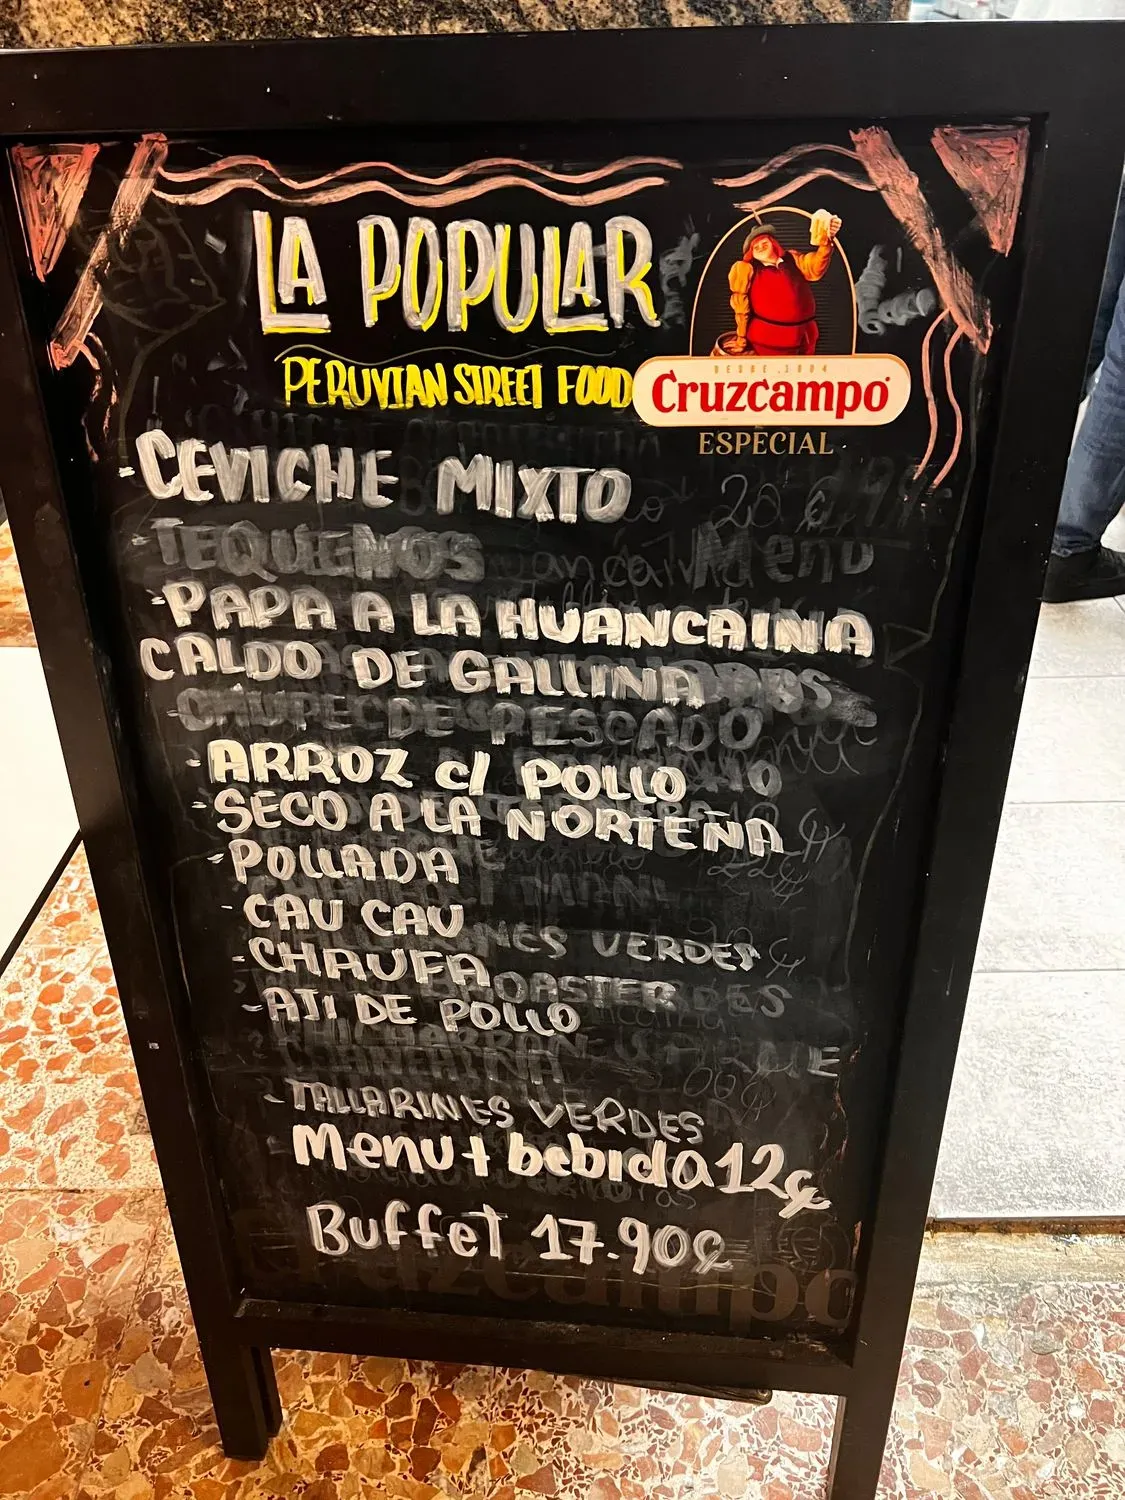 LA POPULAR
PERUVIAN STREET FOOD
DESDE 1904
Cruzcampo
ESPECIAL
- CEVICHE MIXTO
20 €
- TEQUEÑOS
Menu
- PAPA A LA HUANCAINA
CALDO DE GALLINA
- CHUPE DE PESCADO
- ARROZ c/ POLLO
- SECO A LA NORTEÑA
- POLLADA
- CAU CAU
VERDES
- CHAUFA
- AJI DE POLLO
- TALLARINES VERDES
Menu + bebida 12€
Buffet 17.90€